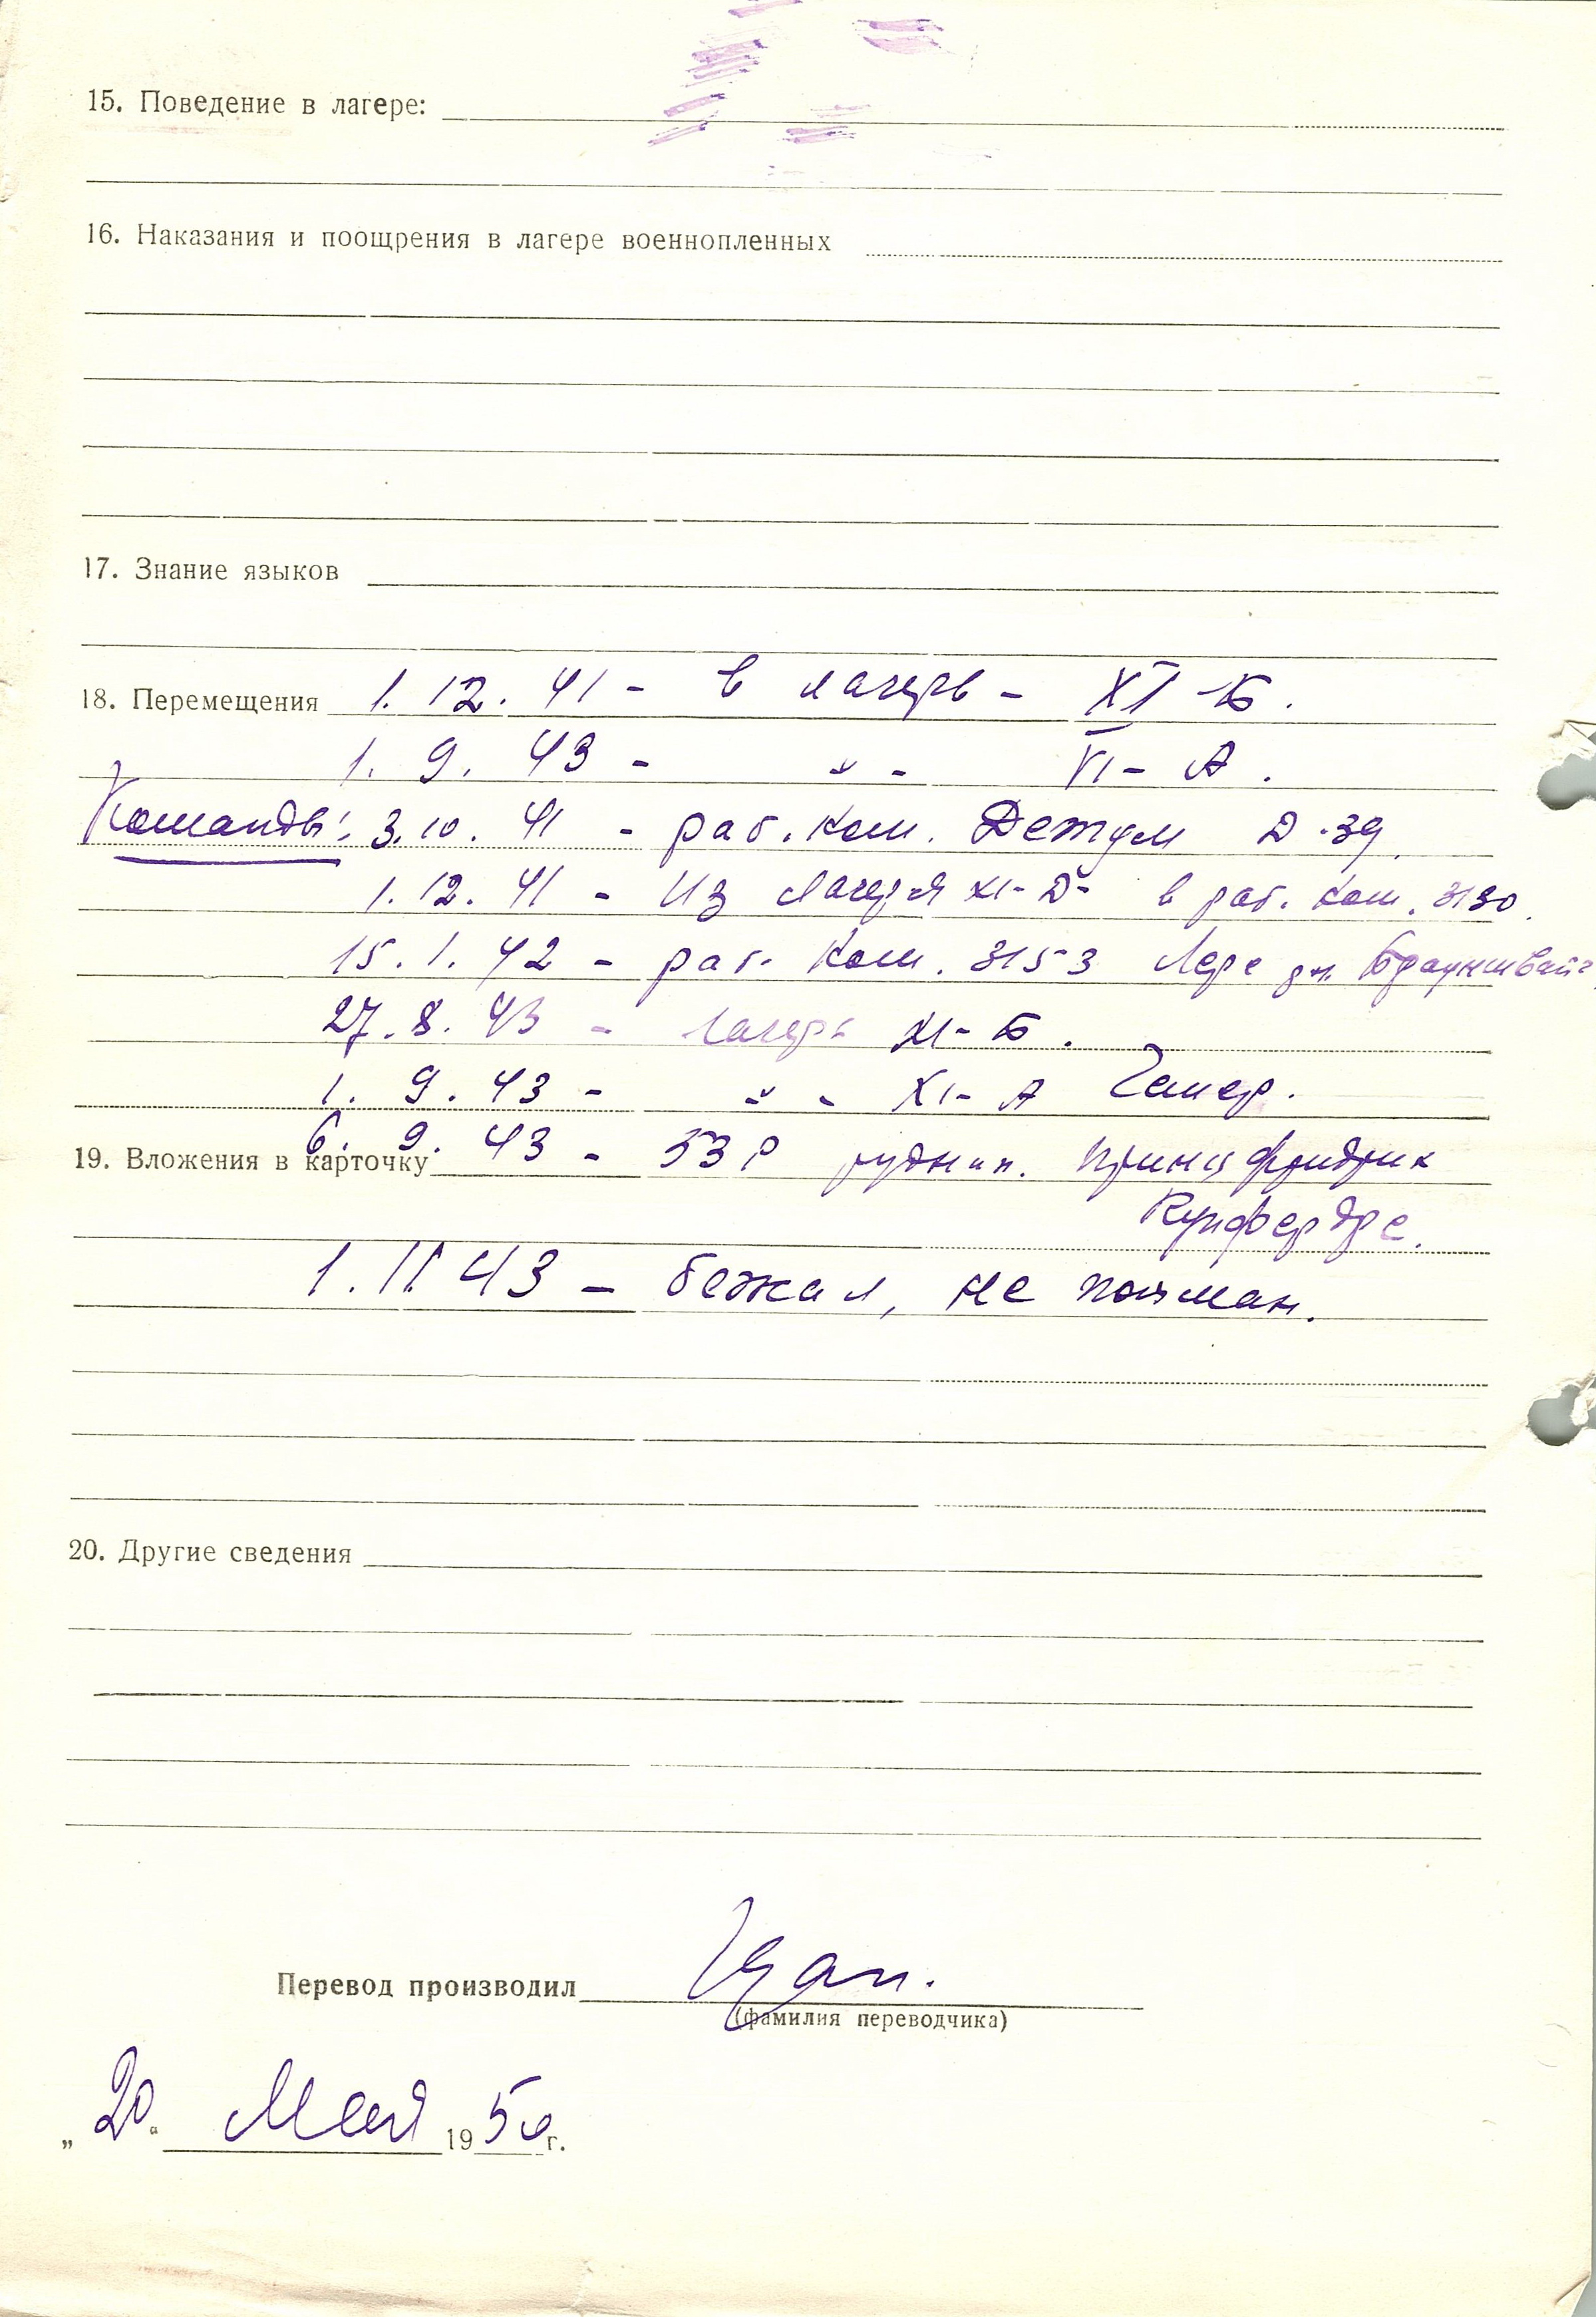 15. Поведение в лагере:
16. Наказания и поощрения в лагере военнопленных
17. Знание языков
18. Перемещения 1. 12. 41 - в лагерь - XI-Б.
1. 9. 43 - " - XI - А.
Команды: 3.10. 41 - раб. ком. Детум Д-39.
1. 12. 41 - Из лагеря XI-Д - в раб. ком. 3130.
15. 1. 42 - раб. ком. 3153 Лере Брауншвайг
27. 8. 43 - лагерь XI - Б.
1. 9. 43 - " - XI - А
6. 9. 43 - 53 Принц Фридрих
19. Вложения в карточку
1. 11 43 - бежал, не пойман.
20. Другие сведения
Перевод производил
(фамилия переводчика)
„20“ Мая 195 г.